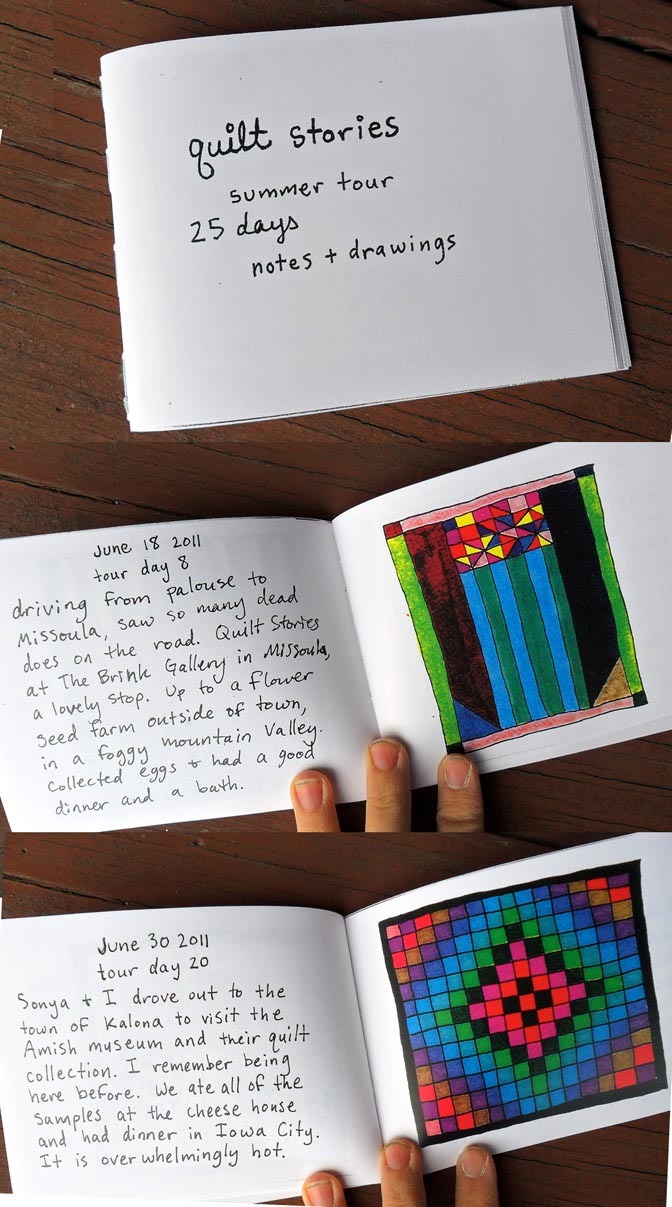 quilt stories
summer tour
25 days
notes + drawings
June 18 2011
tour day 8
driving from palouse to
Missoula, saw so many dead
does on the road. Quilt Stories
at The Brink Gallery in Missoula,
a lovely stop. Up to a flower
seed farm outside of town,
in a foggy mountain Valley.
Collected eggs + had a good
dinner and a bath.
June 30 2011
tour day 20
Sonya + I drove out to the
town of Kalona to visit the
Amish museum and their quilt
collection. I remember being
here before. We ate all of the
samples at the cheese house
and had dinner in Iowa City.
It is overwhelmingly hot.